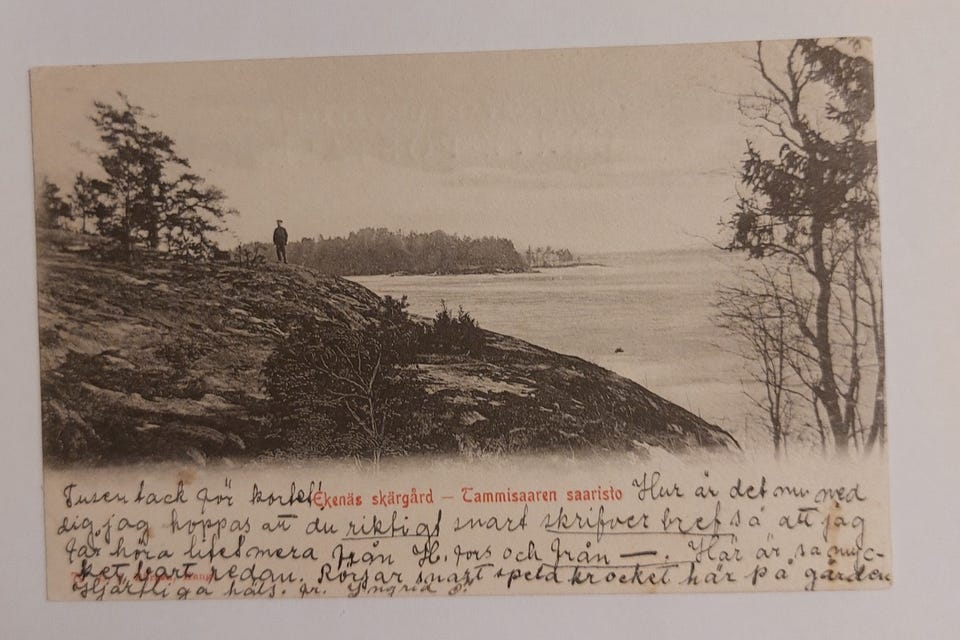 Tusen tack för kortet! Ekenäs skärgård — Tammisaaren saaristo Hur är det nu med
dig, jag hoppas att du riktigt snart skrifver bref så att jag
får höra litet mera från H. fors och från —. Här är så myc-
ket bart redan. snart spela krocket här på gården
Hjärtliga häls. fr. Ingrid